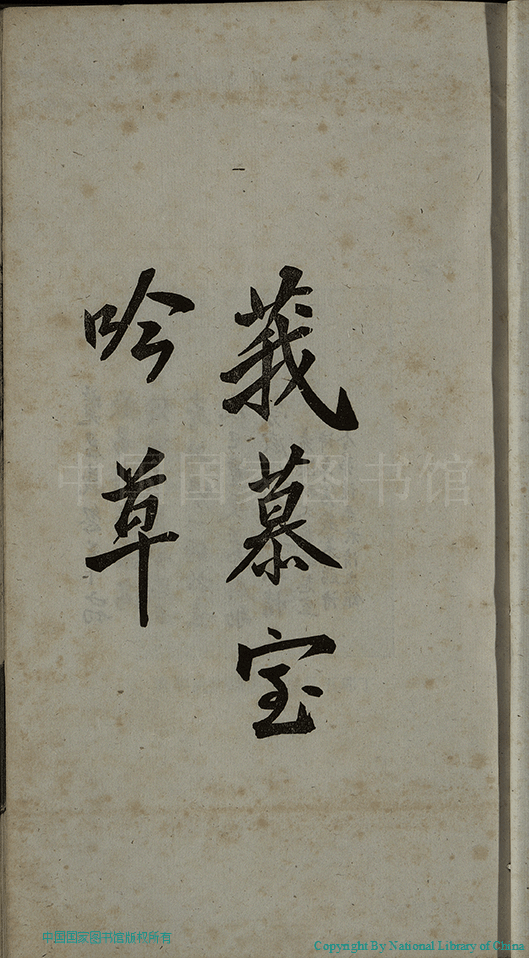 莪慕室
吟草
中国国家图书馆
中国国家图书馆版权所有
Copyright By National Library of China